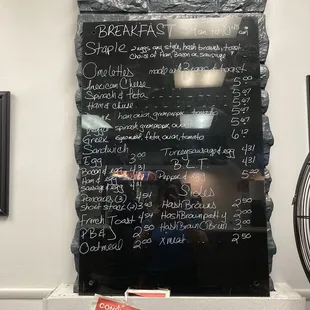 BREAKFAST
Staple 2 eggs any style, hash browns, toast
choice of ham, bacon or sausage
Omelettes made w/ 3 eggs & toast
American Cheese 5
Spinach & feta 5.97
Ham & chuse 5.97
ham, onion, green pepper, tomato 5.97
spinach, green pepper, onion
Greek spinach, feta, onion, tomato 6.12
Sandwich
Egg 3.00
Bacon & egg 4.31
Ham & egg 4.31
Sausage & egg 4.31
Pancakes (3) 4.54
Short stack (2) 3.43
French Toast 4.54
PB & J 2.50
Oatmeal 2.00
Turkey sausage & egg 4.31
B.L.T. 4.31
Pepper & egg 5.00
Sides
Hash Browns 2.50
Hash Brown patty 2.00
Hash Brown 3.00
X meat 2.50